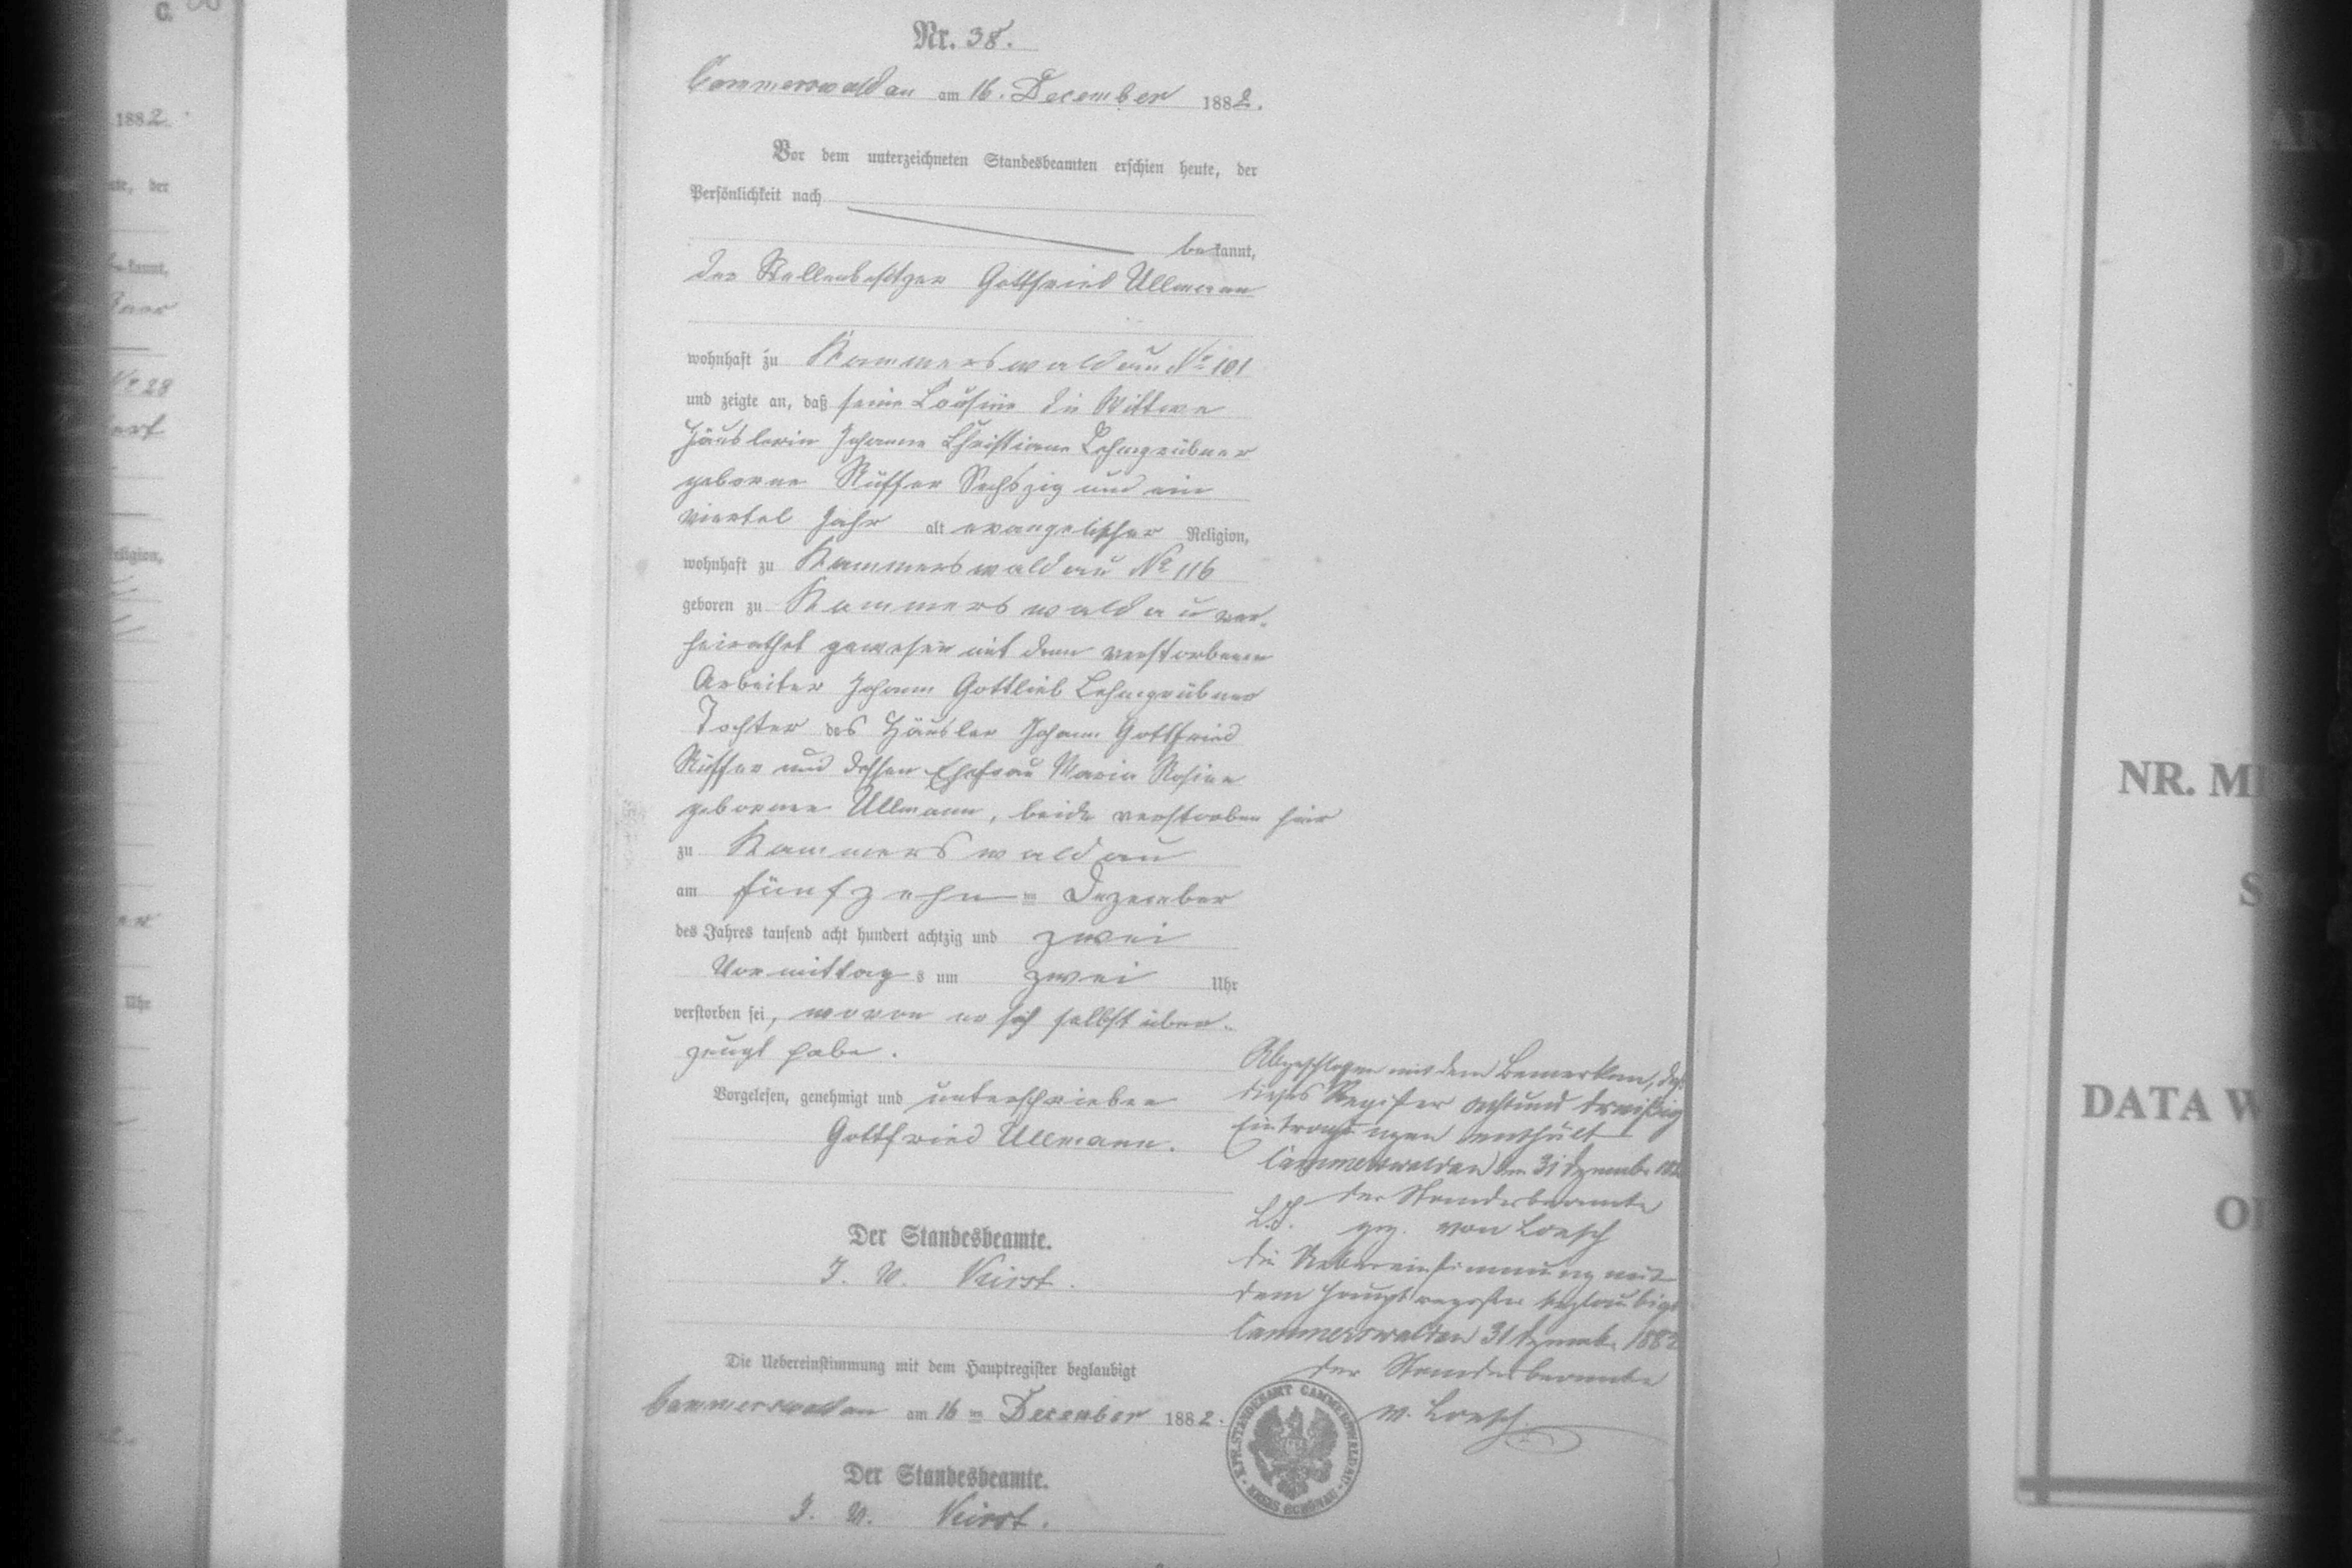 C.
1882.
ute, der
bekannt,
No 28
ert
Religion,
er
Uhr
Nr. 38.
Cammerswaldau am 16. December 1882.
Vor dem unterzeichneten Standesbeamten erschien heute, der
Persönlichkeit nach
bekannt,
der Stellenbesitzer Gottfried Ullmann
wohnhaft zu Kammerswaldau No 101
und zeigte an, daß seine Cousine die Wittwe
Häuslerin Johanne Christiane Lehngrübner
geborne Rüffer Sechszig und ein
viertel Jahr alt evangelischer Religion,
wohnhaft zu Kammerswaldau No 116
geboren zu Kammerswaldau ver-
heirathet gewesen mit dem verstorbenen
Arbeiter Johann Gottlieb Lehngrübner
Tochter des Häusler Johann Gottfried
Rüffer und dessen Ehefrau Maria Rosina
geborene Ullmann, beide verstorben hier
zu Kammerswaldau
am fünfzehn ten Dezember
des Jahres tausend acht hundert achtzig und zwei
Vormittags um zwei Uhr
verstorben sei, wovon er sich selbst über-
zeugt habe.
Vorgelesen, genehmigt und unterschrieben
Gottfried Ullmann.
Der Standesbeamte.
J. V. Kirst.
Die Uebereinstimmung mit dem Hauptregister beglaubigt
Cammerswaldau am 16 ten December 1882.
Der Standesbeamte.
J. V. Kirst.
Abgeschlossen mit dem Bemerken, daß
dieses Register achtund dreißig
Eintragungen enthält
Cammerswaldau den 31 Dezember 1882
der Standesbeamte
L.S. gez. von Loesch
die Uebereinstimmung mit
dem Hauptregister beglaubigt
Cammerswaldau 31 Dezemb. 1882
der Standesbeamte
v. Loesch
K. PR. STANDESAMT CAMMERSWALDAU
KREIS SCHÖNAU
NR. MI
DATA W